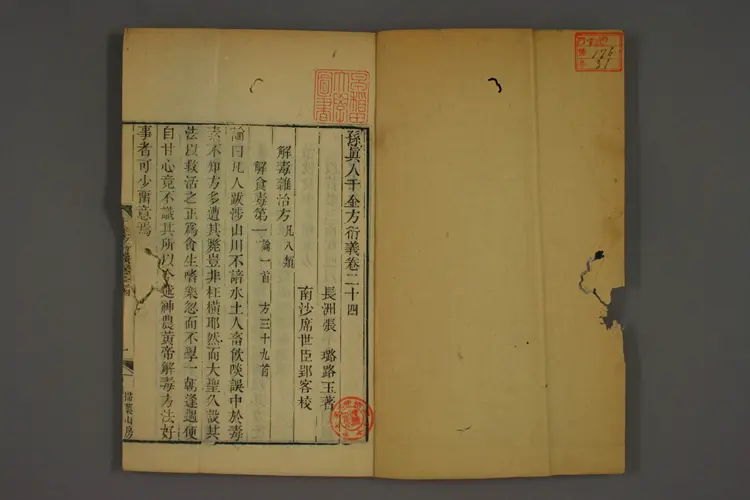 孫眞人千金方衍義卷二十四
長洲張 璐路玉著
南沙席世臣郢客校
解毒雜治方凡八類
解食毒第一論一首 方三十九首
論曰凡人跋涉山川不諳水土人畜飲啖誤中於毒
素不知方多遭其斃豈非枉橫耶然而大聖久設其
法以救活之正爲貪生嗜樂忽而不學一朝逢遇便
自甘心竟不識其所以今述神農黃帝解毒方法好
事者可少畱意焉
掃葉山房
早稲田大學圖書
176
31